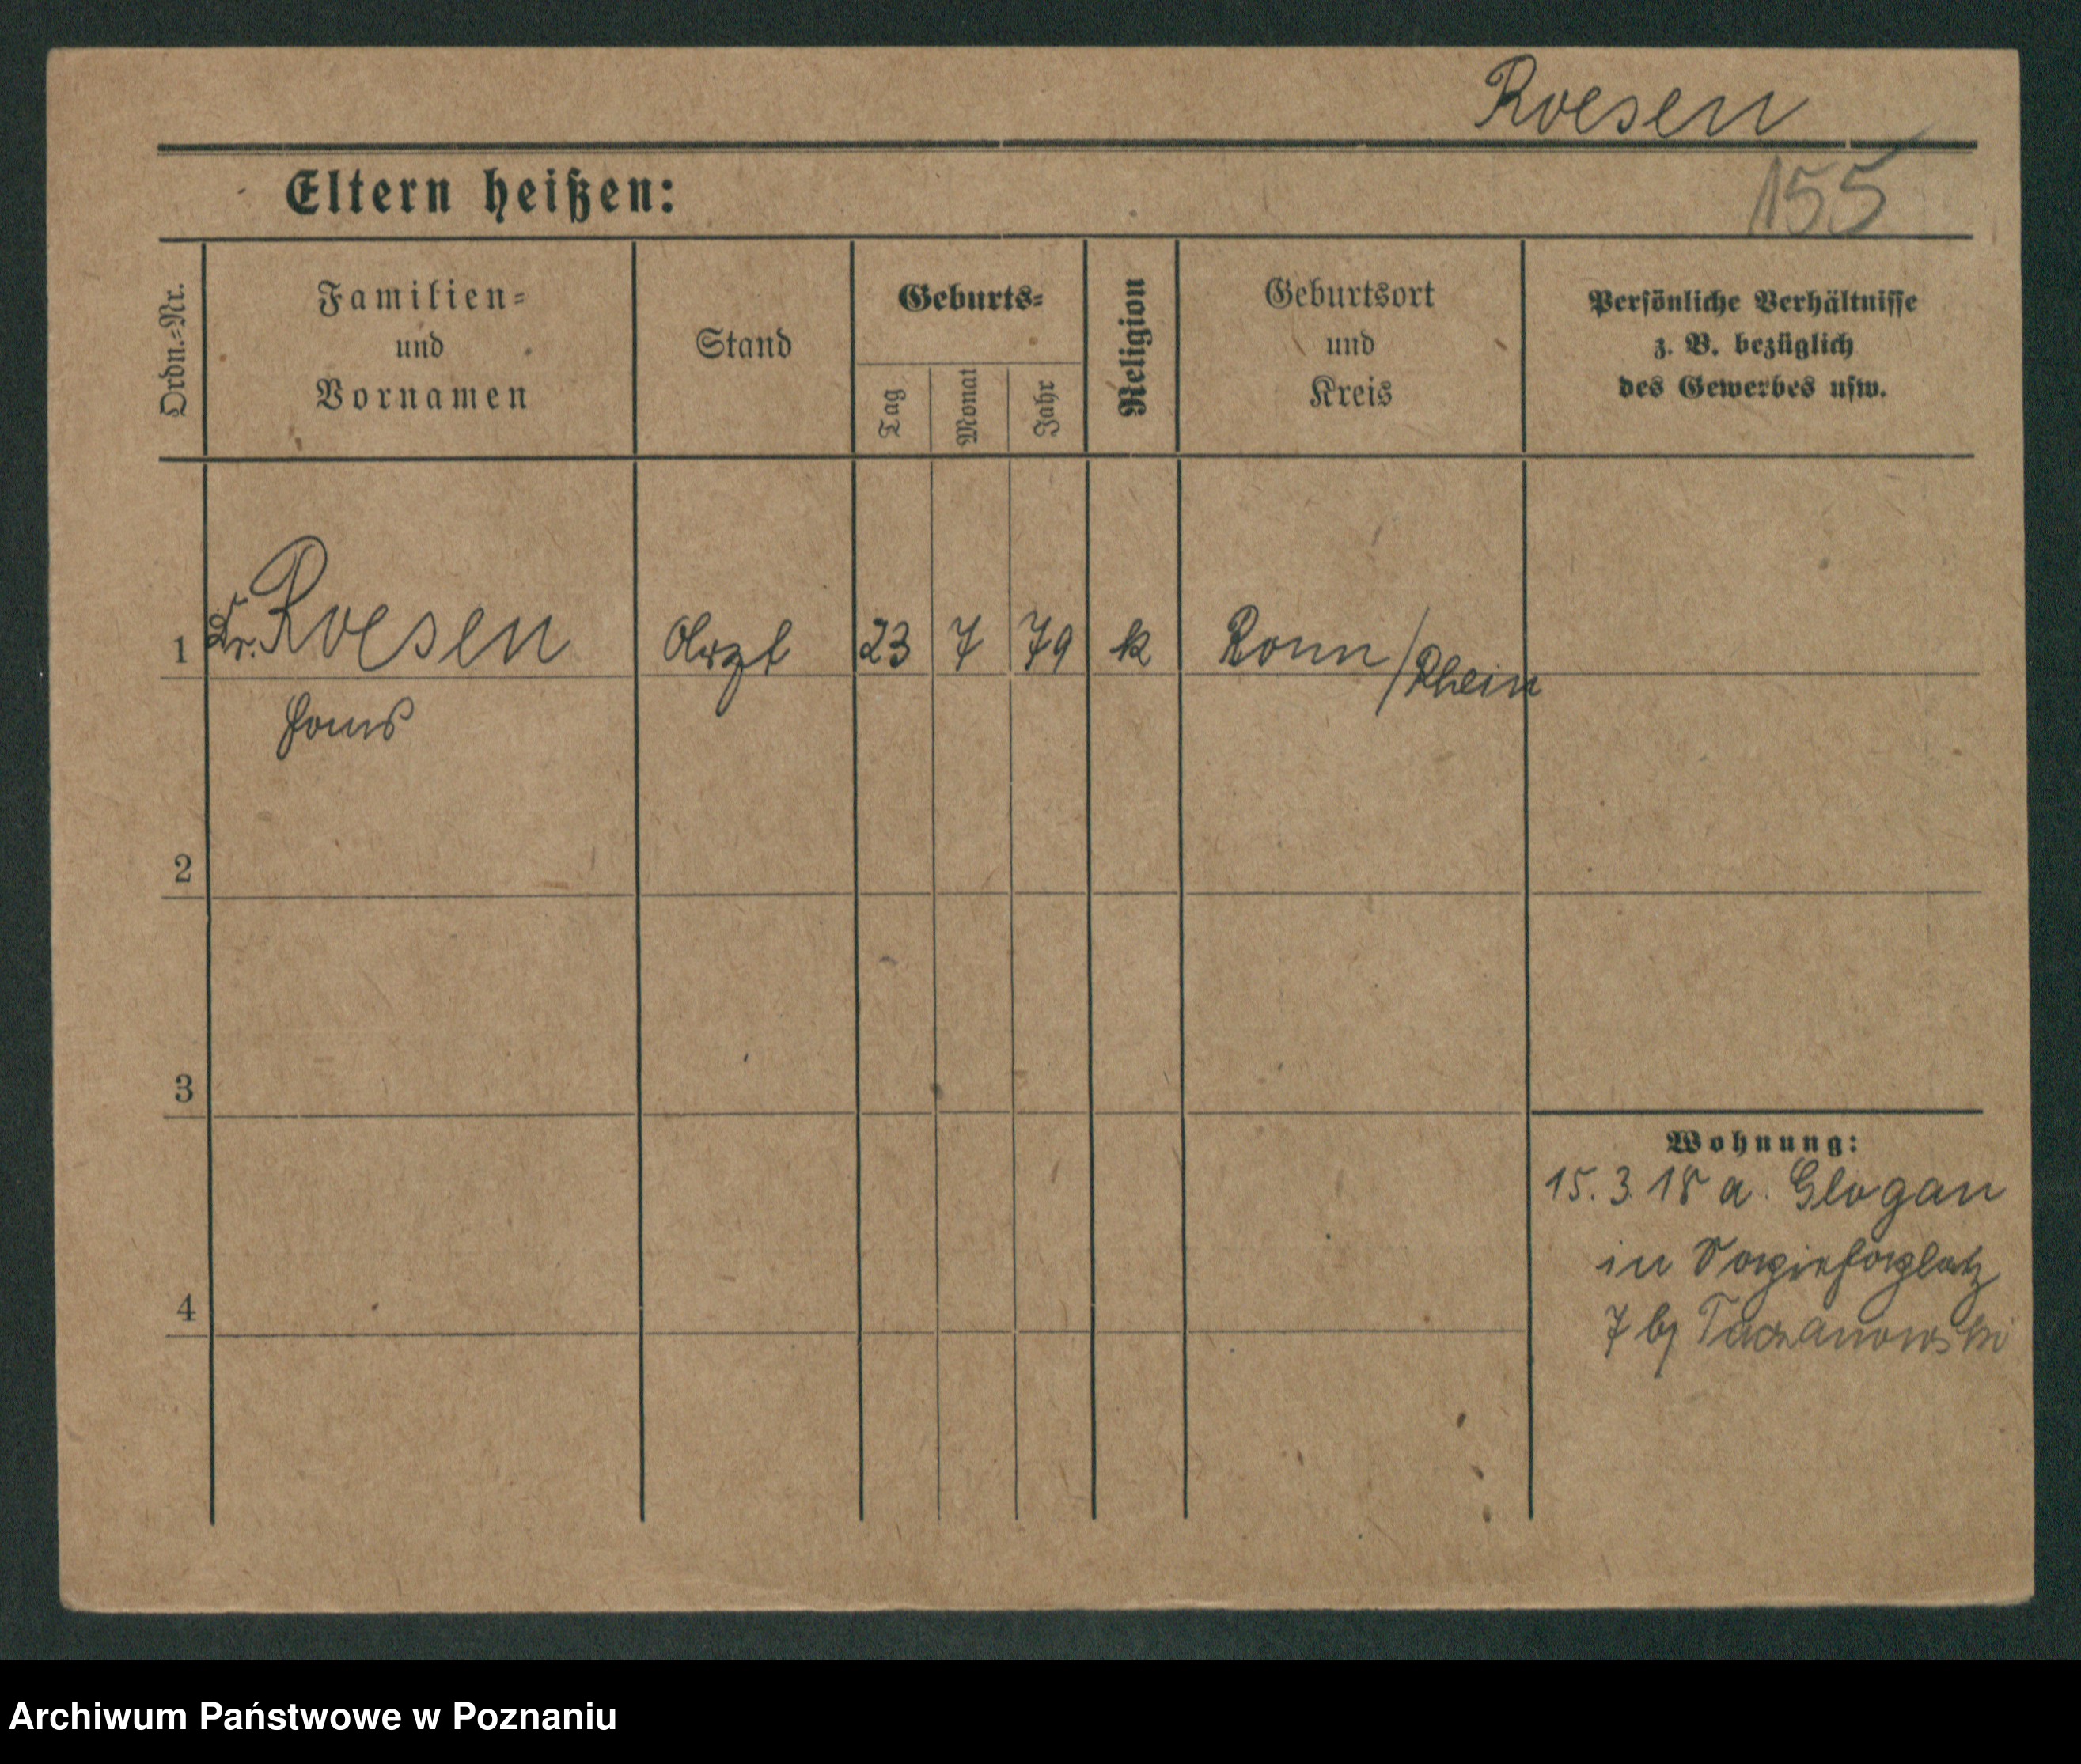 Roesen
Eltern heißen:
155
Ordn.-Nr.
Familien-
und
Vornamen
Stand
Geburts-
Tag
Monat
Jahr
Religion
Geburtsort
und
Kreis
Persönliche Verhältnisse
z. B. bezüglich
des Gewerbes usw.
1 Dr. Roesen Arzt 23 7 79 k Bonn / Rhein
Hans
2
3
4
Wohnung:
15. 3. 18 a. Glogau
in
7 by Taczanowski
Archiwum Państwowe w Poznaniu